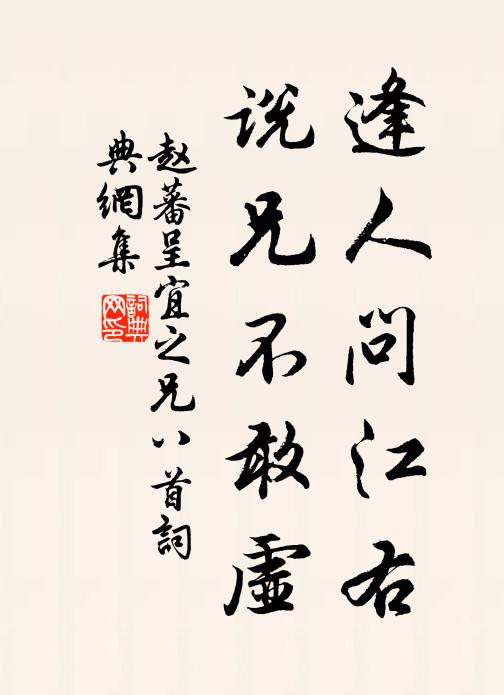 逢人问江右
说兄不敢虚
赵蕃呈宜之兄八首词
典網集
詞典网印